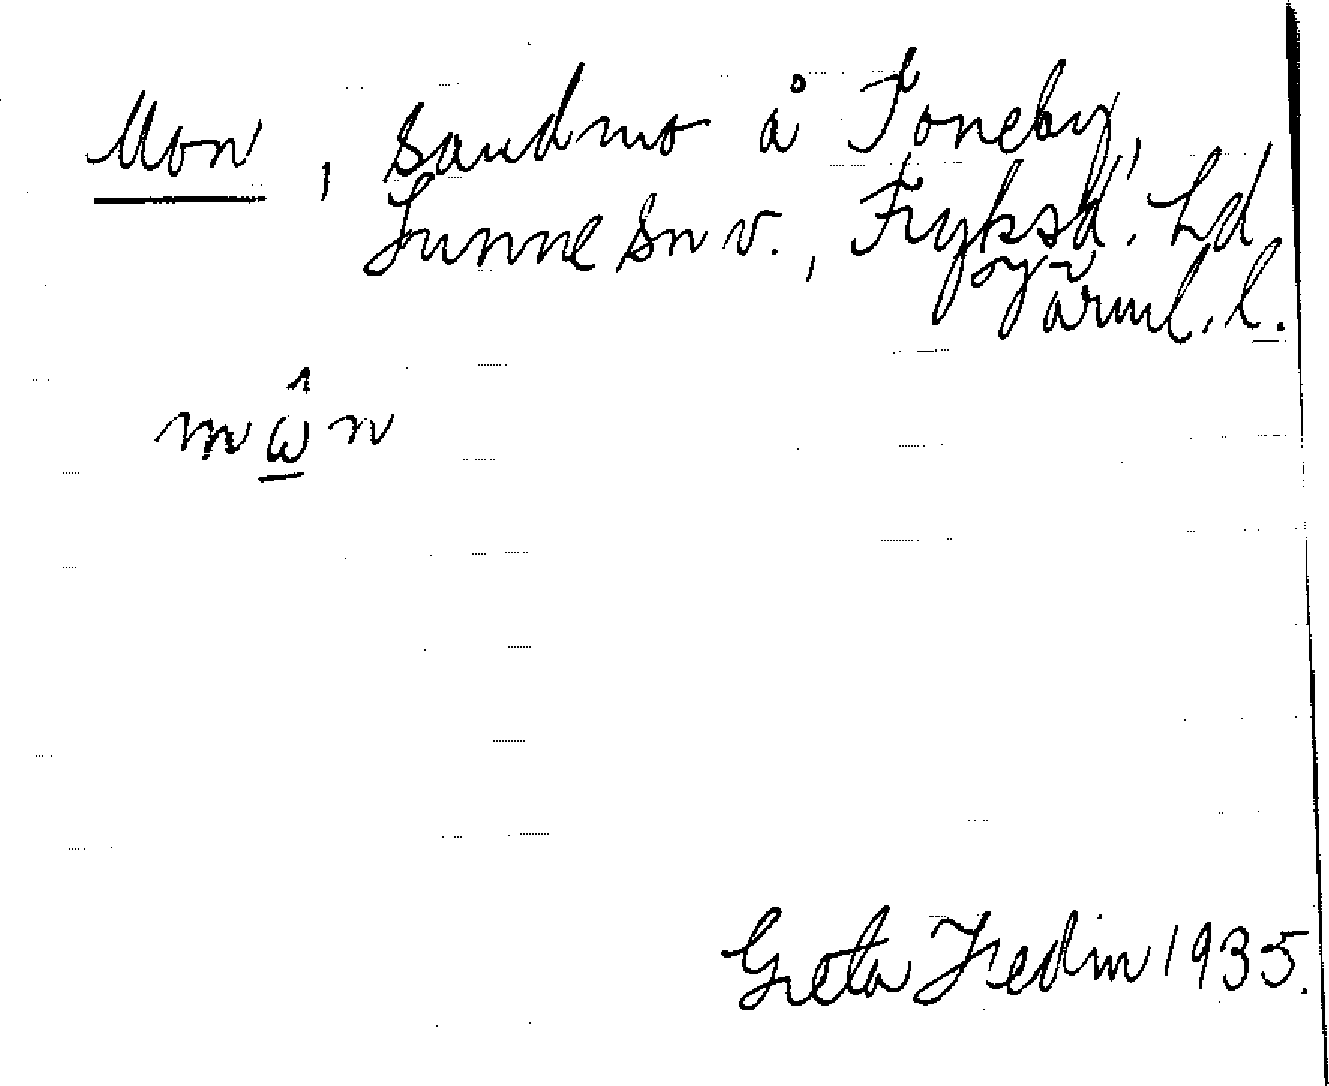 Mon, sandmo å Toneby,
Sunne sn v., Fryksd. hd
Värml. l.
mω̂n
Greta Hedin 1935.